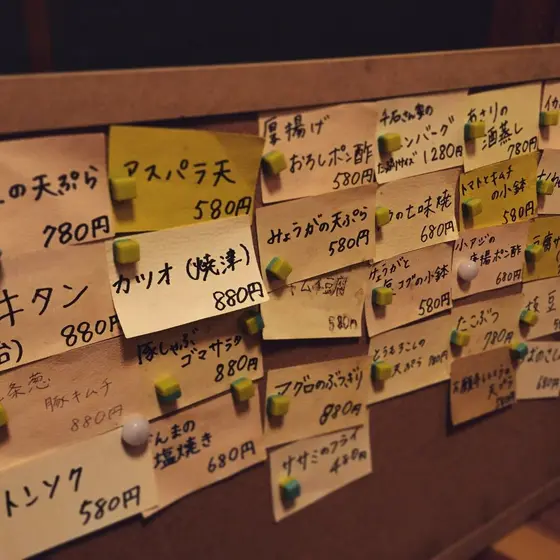 の天ぷら
780円
アスパラ天
580円
厚揚げ
おろしポン酢
580円
千石さん家の
ンバーグ
1280円
あさりの
酒蒸し
780円
イカ
牛タン
880円
カツオ(焼津)
880円
みょうがの天ぷら
580円
の七味焼
680円
トマトとキムチ
の小鉢
580円
キムチ豆腐
580円
みょうがと
コグの小鉢
580円
小アジの
唐揚ポン酢
680円
条葱
豚キムチ
880円
豚しゃぶ
ゴマサラダ
880円
マグロのぶつぎり
880円
とうもろこしの
天ぷら
たこぶつ
780円
枝豆
トンソク
580円
んまの
塩焼き
680円
ササミのフライ
480円
天ぷら